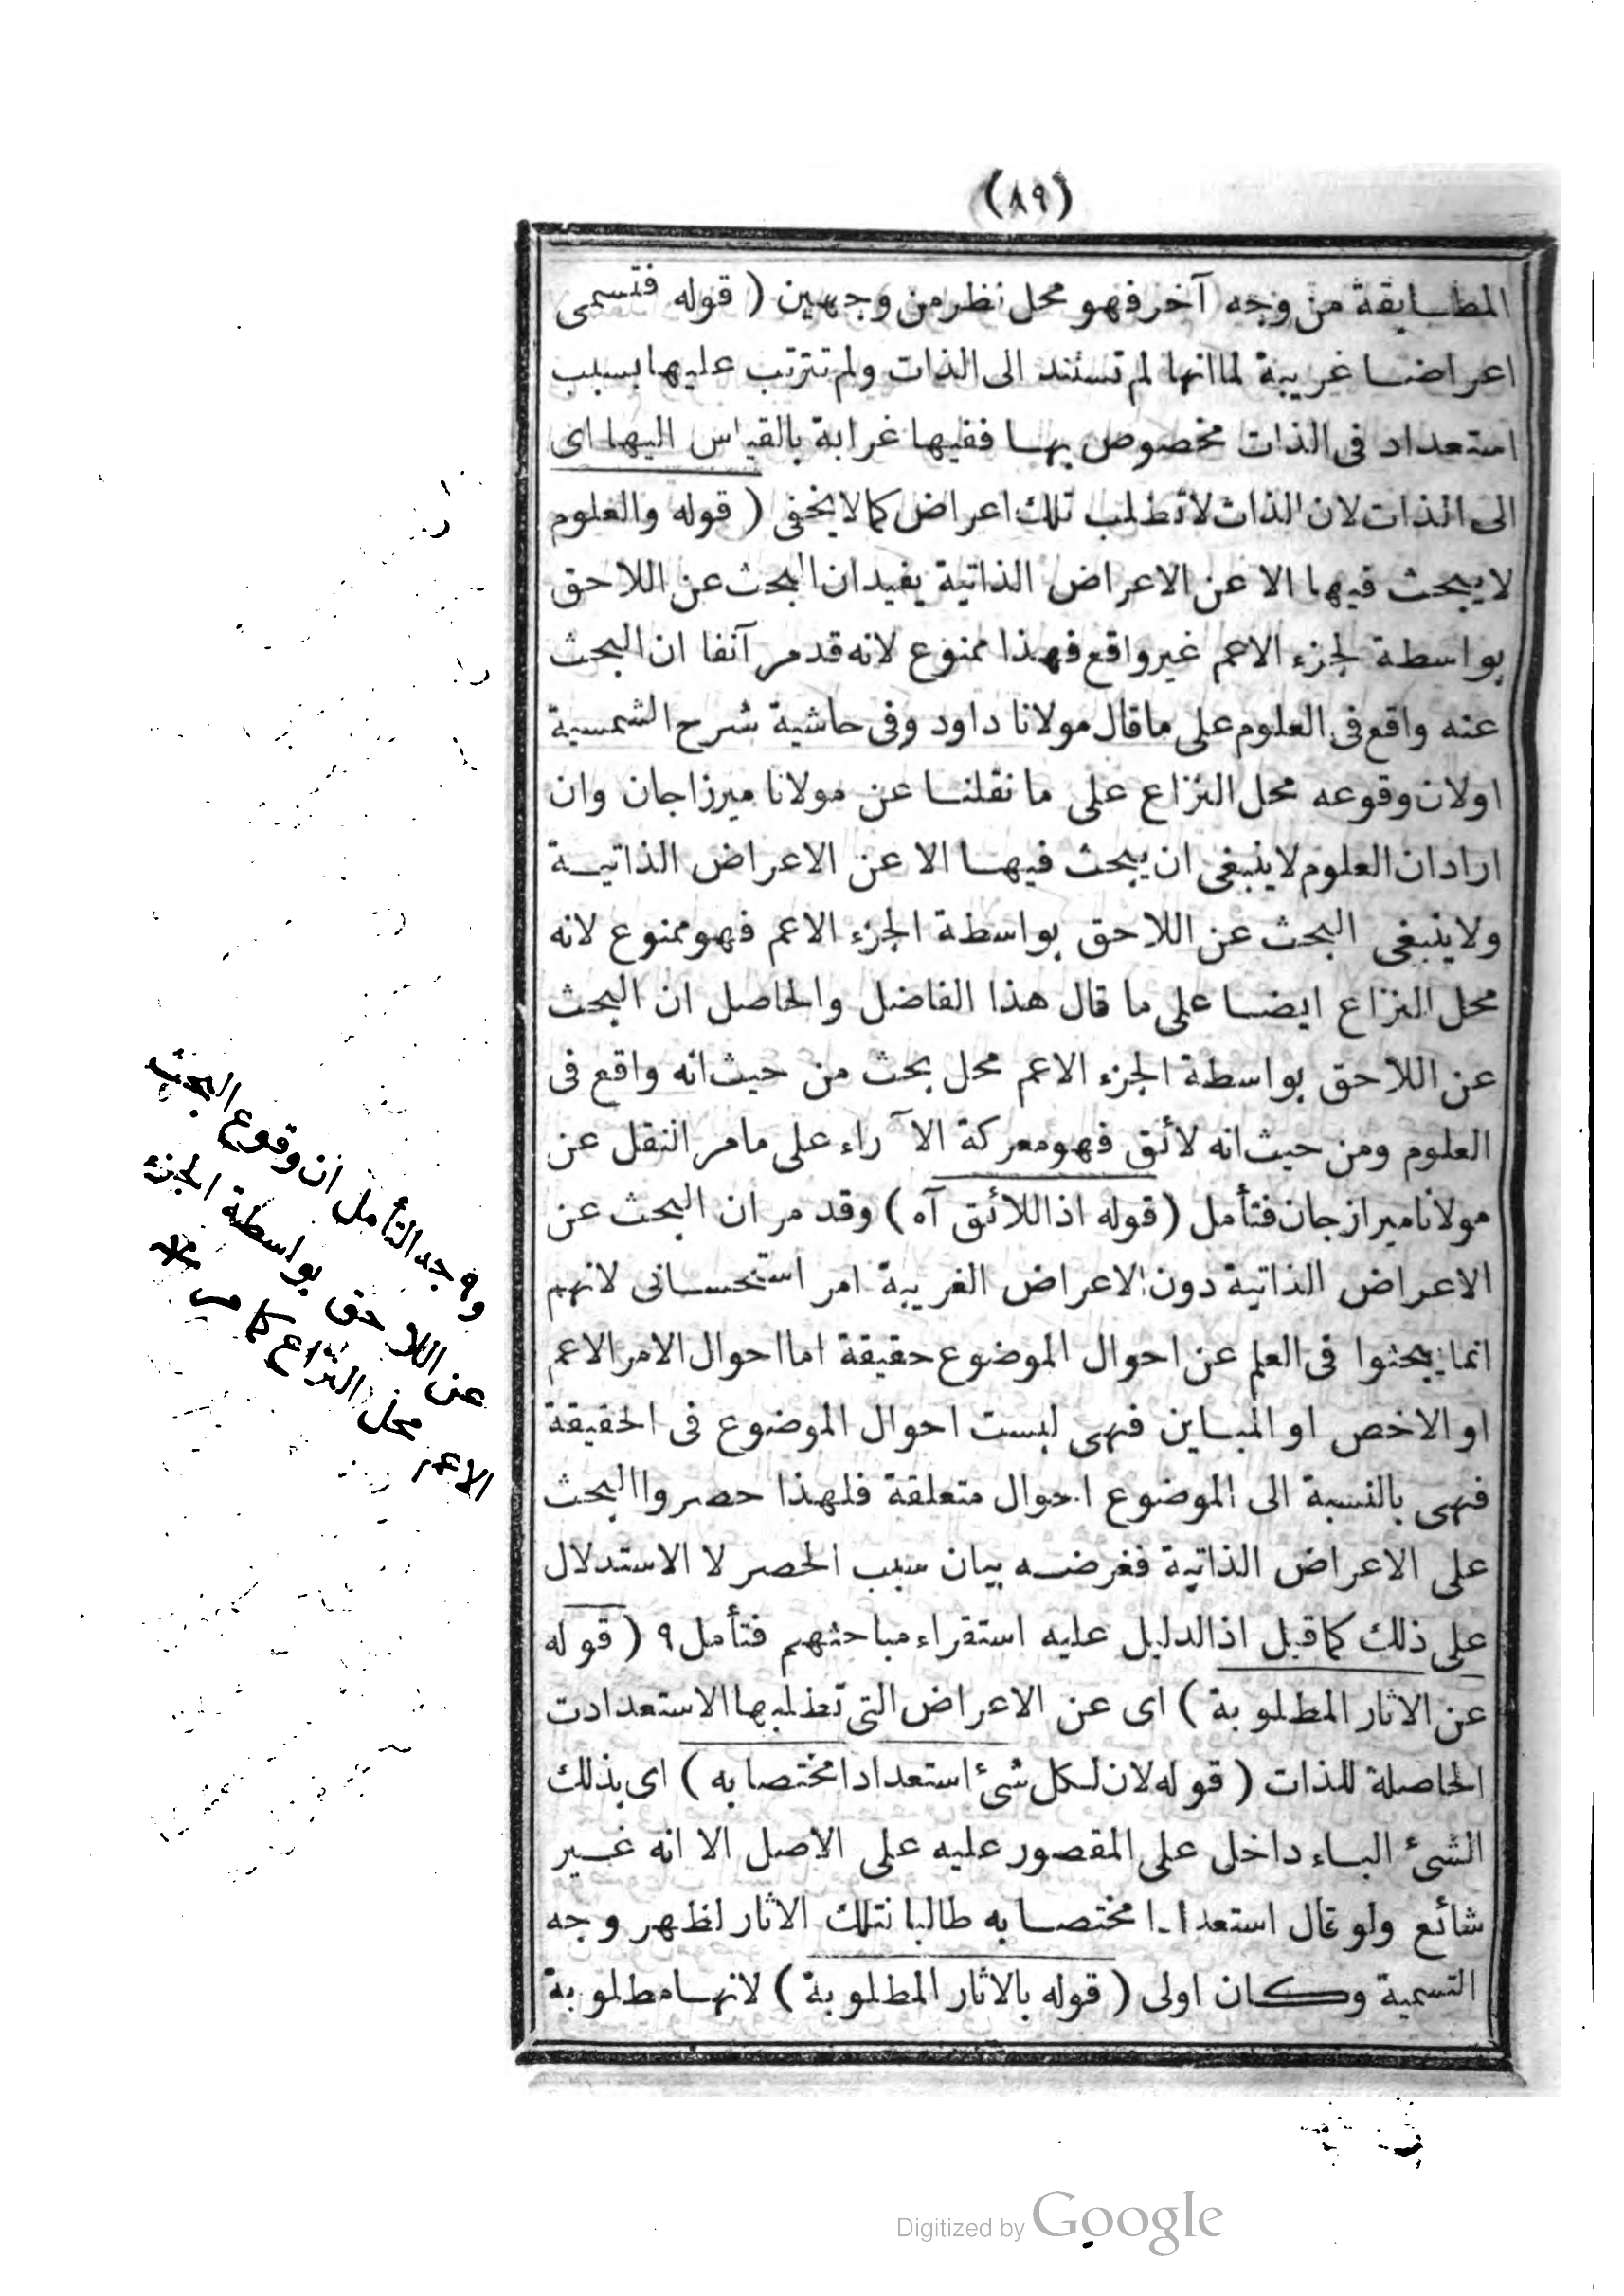 (٨٩)
المطابقة من وجه آخر فهو محل نظر من وجهين ( قوله فتسمى
اعراضا غريبة لما انها لم تستند الى الذات ولم تترتب عليها بسبب
استعداد فى الذات مخصوص بها ففيها غرابة بالقياس اليها اى
الى الذات لان الذات لا تطلب تلك اعراض كما لا يخفى ( قوله والعلوم
لا يبحث فيها الا عن الاعراض الذاتية يفيد ان البحث عن اللاحق
بواسطة لجزء الاعم غير واقع فهذا ممنوع لانه قد مر آنفا ان البحث
عنه واقع فى العلوم على ما قال مولانا داود وفى حاشية شرح الشمسية
اولان وقوعه محل النزاع على ما نقلنا عن مولانا ميرزاجان وان
اراد ان العلوم لا ينبغى ان يبحث فيها الا عن الاعراض الذاتية
ولا ينبغى البحث عن اللاحق بواسطة الجزء الاعم فهو ممنوع لانه
محل النزاع ايضا على ما قال هذا الفاضل والحاصل ان البحث
عن اللاحق بواسطة الجزء الاعم محل بحث من حيث انه واقع فى
العلوم ومن حيث انه لائق فهو معركة الآراء على ما مر النقل عن
مولانا ميرازجان فتأمل ( قوله اذ اللائق آه ) وقد مر ان البحث عن
الاعراض الذاتية دون الاعراض الغريبة امر استحسانى لانهم
انما يبحثوا فى العلم عن احوال الموضوع حقيقة اما احوال الامر الاعم
او الاخص او المباين فهى ليست احوال الموضوع فى الحقيقة
فهى بالنسبة الى الموضوع احوال متعلقة فلهذا حصروا البحث
على الاعراض الذاتية فغرضه بيان سبب الحصر لا الاستدلال
على ذلك كما قيل اذ الدليل عليه استقراء مباحثهم فتأمل ٩ ( قوله
عن الاثار المطلوبة ) اى عن الاعراض التى تطلبها الاستعدادت
الحاصلة للذات ( قوله لان لكل شئ استعدادا مختصا به ) اى بذلك
الشئ الباء داخل على المقصور عليه على الاصل الا انه غير
شائع ولو قال استعدادا مختصا به طالبا لتلك الاثار لظهر وجه
التسمية وكان اولى ( قوله بالاثار المطلوبة ) لانها مطلوبة
وجه التأمل ان وقوع البحث
عن اللاحق بواسطة الجزء
الاعم محل النزاع كما مر
Digitized by Google